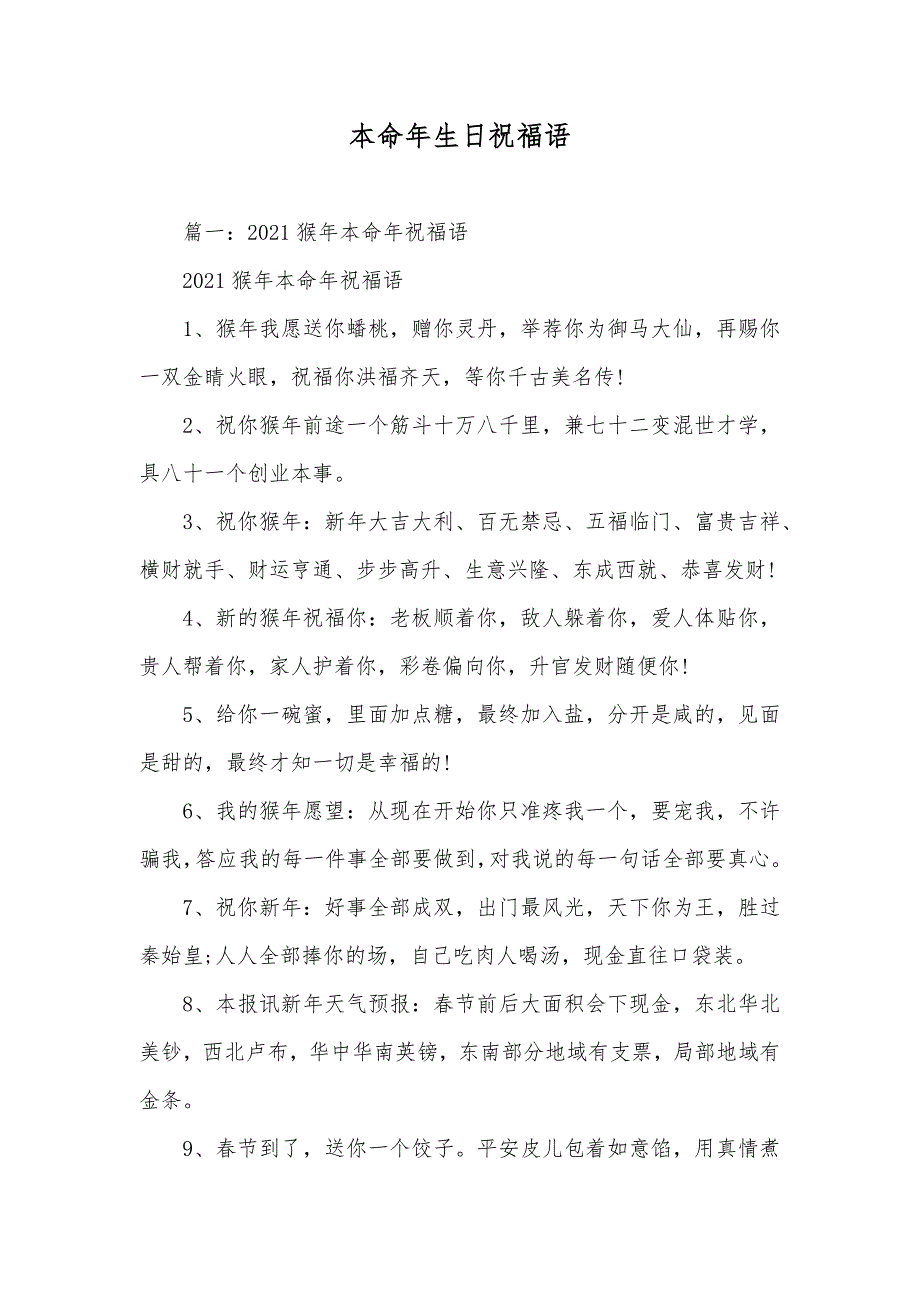 本命年生日祝福语
篇一：2021猴年本命年祝福语
2021猴年本命年祝福语
1、猴年我愿送你蟠桃，赠你灵丹，举荐你为御马大仙，再赐你
一双金睛火眼，祝福你洪福齐天，等你千古美名传!
2、祝你猴年前途一个筋斗十万八千里，兼七十二变混世才学，
具八十一个创业本事。
3、祝你猴年：新年大吉大利、百无禁忌、五福临门、富贵吉祥、
横财就手、财运亨通、步步高升、生意兴隆、东成西就、恭喜发财!
4、新的猴年祝福你：老板顺着你，敌人躲着你，爱人体贴你，
贵人帮着你，家人护着你，彩卷偏向你，升官发财随便你!
5、给你一碗蜜，里面加点糖，最终加入盐，分开是咸的，见面
是甜的，最终才知一切是幸福的!
6、我的猴年愿望：从现在开始你只准疼我一个，要宠我，不许
骗我,答应我的每一件事全部要做到,对我说的每一句话全部要真心。
7、祝你新年：好事全部成双，出门最风光，天下你为王，胜过
秦始皇;人人全部捧你的场，自己吃肉人喝汤，现金直往口袋装。
8、本报讯新年天气预报：春节前后大面积会下现金，东北华北
美钞，西北卢布，华中华南英镑，东南部分地域有支票，局部地域有
金条。
9、春节到了，送你一个饺子。平安皮儿包着如意馅，用真情煮